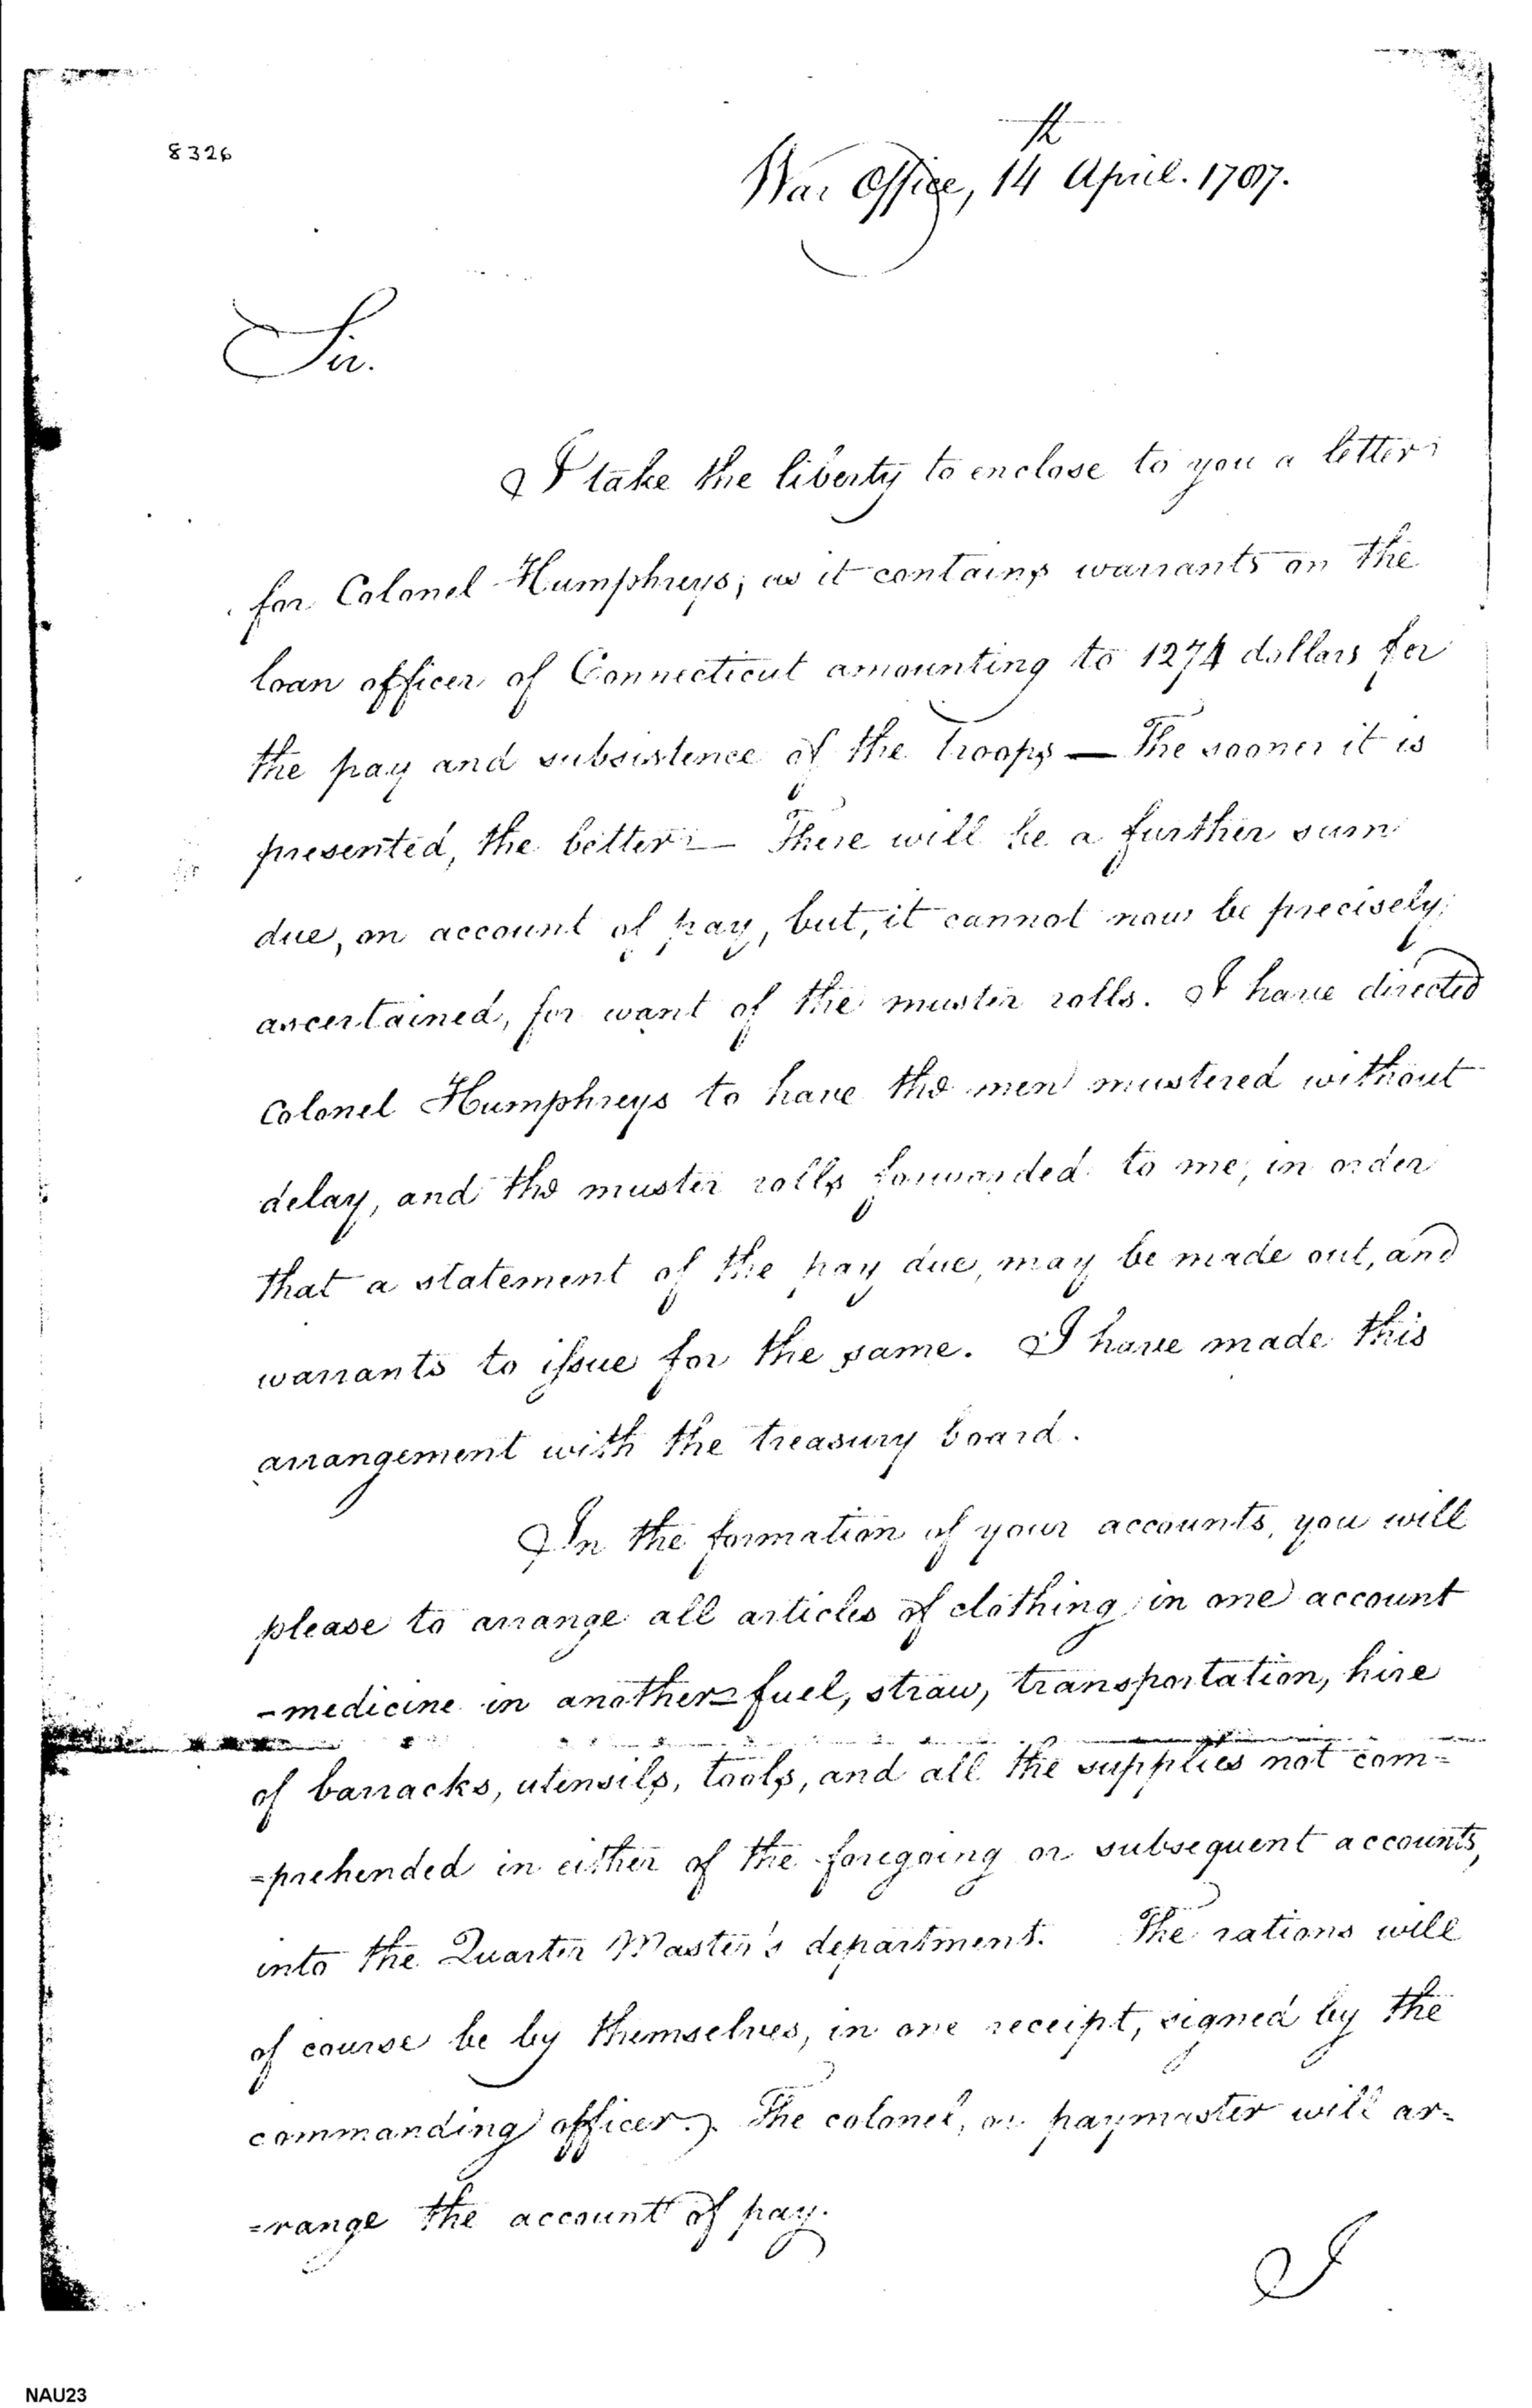 8326
War Office, 14th April. 1787.
Sir.
I take the liberty to enclose to you a letter
for Colonel Humphreys, as it contains warrants on the
loan officer of Connecticut amounting to 1274 dollars for
the pay and subsistence of the Troops — The sooner it is
presented, the better — There will be a further sum
due, on account of pay, but, it cannot now be precisely
ascertained, for want of the muster rolls. I have directed
Colonel Humphreys to have the men mustered without
delay, and the muster rolls forwarded to me, in order
that a statement of the pay due, may be made out, and
warrants to issue for the same. I have made this
arrangement with the treasury board.
In the formation of your accounts, you will
please to arrange all articles of clothing in one account
- medicine in another - fuel, straw, transportation, hire
of barracks, utensils, tools, and all the supplies not com=
=prehended in either of the foregoing or subsequent accounts,
into the Quarter Master's department. The rations will
of course be by themselves, in one receipt, signed by the
commanding officer. The colonel, or paymaster will ar=
=range the account of pay.
I
NAU23